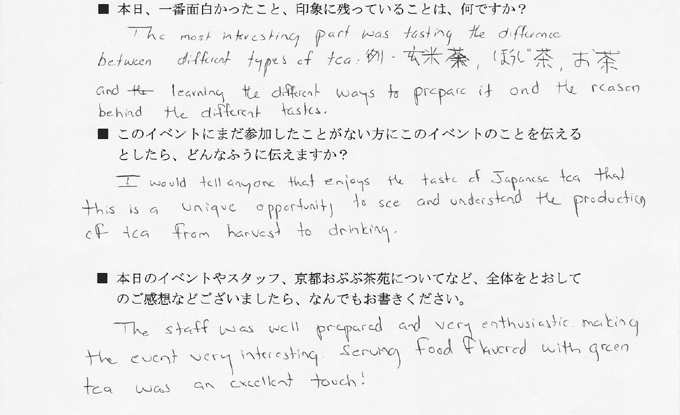 ■ 本日、一番面白かったこと、印象に残っていることは、何ですか？
The most interesting part was tasting the difference
between different types of tea. 例・玄米茶, ほうじ茶, お茶
and the learning the different ways to prepare it and the reason
behind the different tastes.
■ このイベントにまだ参加したことがない方にこのイベントのことを伝える
としたら、どんなふうに伝えますか？
I would tell anyone that enjoys the taste of Japanese tea that
this is a unique opportunity to see and understand the production
of tea from harvest to drinking.
■ 本日のイベントやスタッフ、京都おぶぶ茶苑についてなど、全体をとおして
のご感想などございましたら、なんでもお書きください。
The staff was well prepared and very enthusiastic making
the event very interesting. Serving food flavored with green
tea was an excellent touch!